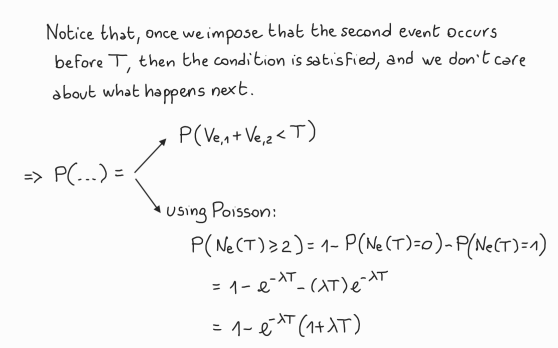 Notice that, once we impose that the second event occurs
before T, then the condition is satisfied, and we don't care
about what happens next.
P(Ve,1+Ve,2<T)
=> P(...) =
using Poisson:
P(Ne(T)≥2)=1-P(Ne(T)=0)-P(Ne(T)=1)
= 1-e^-λT-(λT)e^-λT
= 1-e^-λT(1+λT)